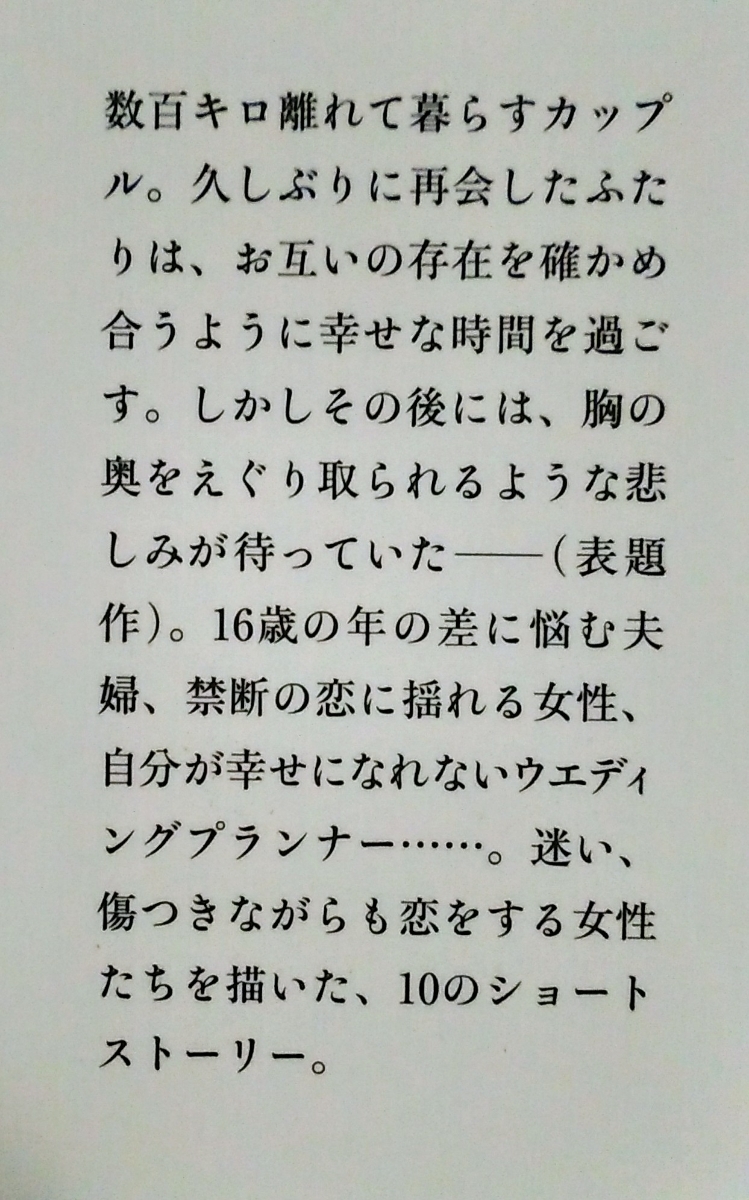 数百キロ離れて暮らすカップ
ル。久しぶりに再会したふた
りは、お互いの存在を確かめ
合うように幸せな時間を過ご
す。しかしその後には、胸の
奥をえぐり取られるような悲
しみが待っていた――(表題
作)。16歳の年の差に悩む夫
婦、禁断の恋に揺れる女性、
自分が幸せになれないウエディ
ングプランナー……。迷い、
傷つきながらも恋をする女性
たちを描いた、10のショート
ストーリー。